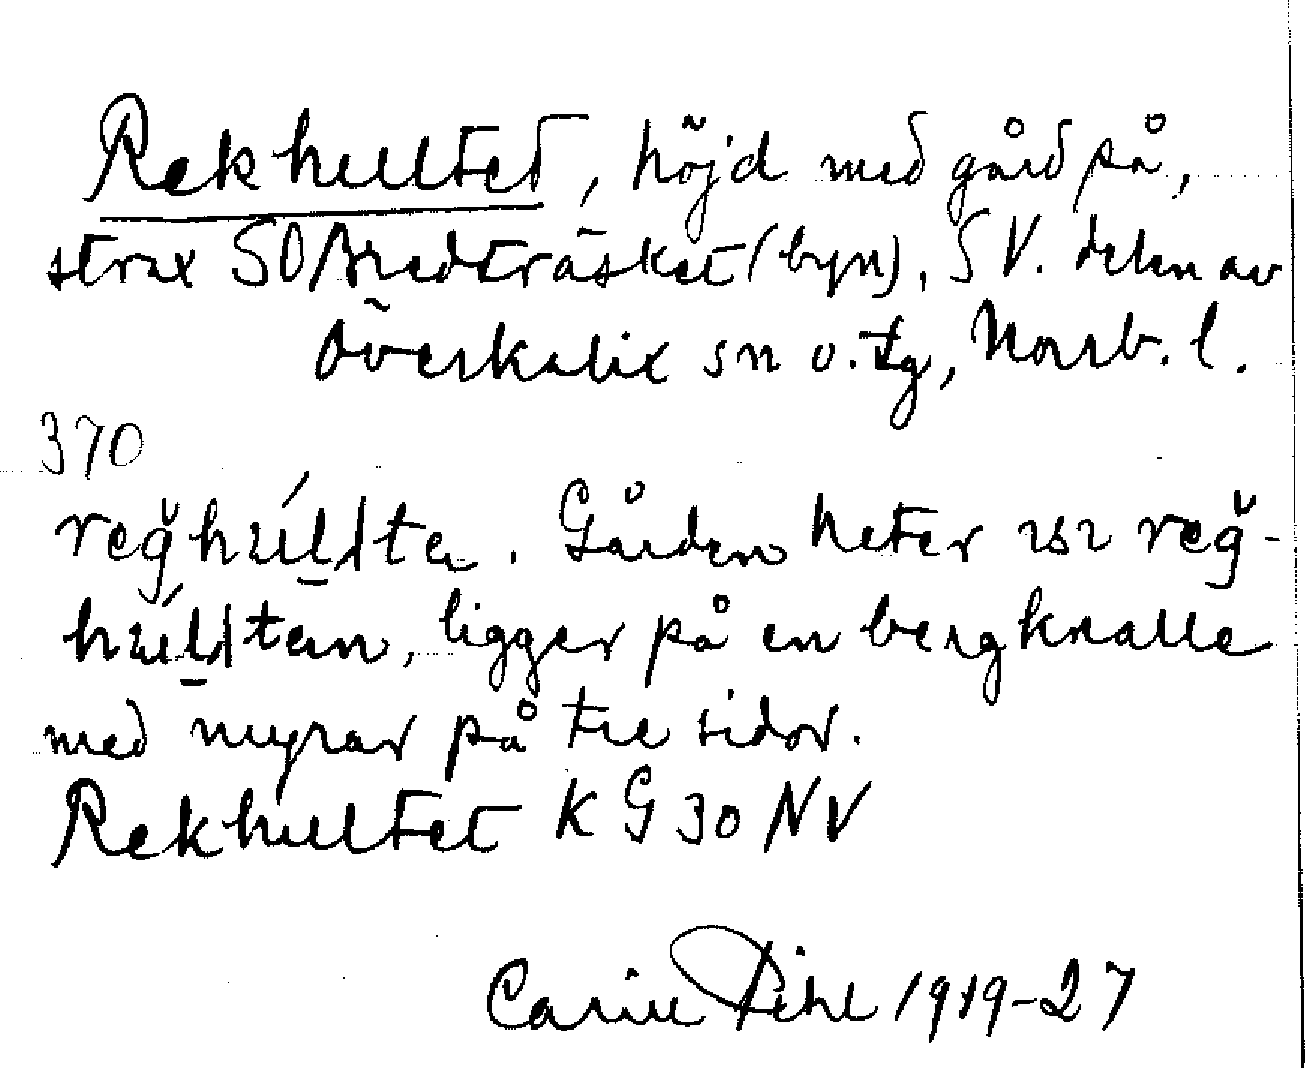 Rekhultet, höjd med gård på,
strax SO Bredträsket (byn), SV. delen av
Överkalix sn o. tg, Norrb. l.
370
reğhúl̲lta. Gården heter
reğ-
húl̲ltan, ligger på en bergknalle
med myrar på tre sidor.
Rekhultet KG 30 NV
Carin Pihl 1919-27